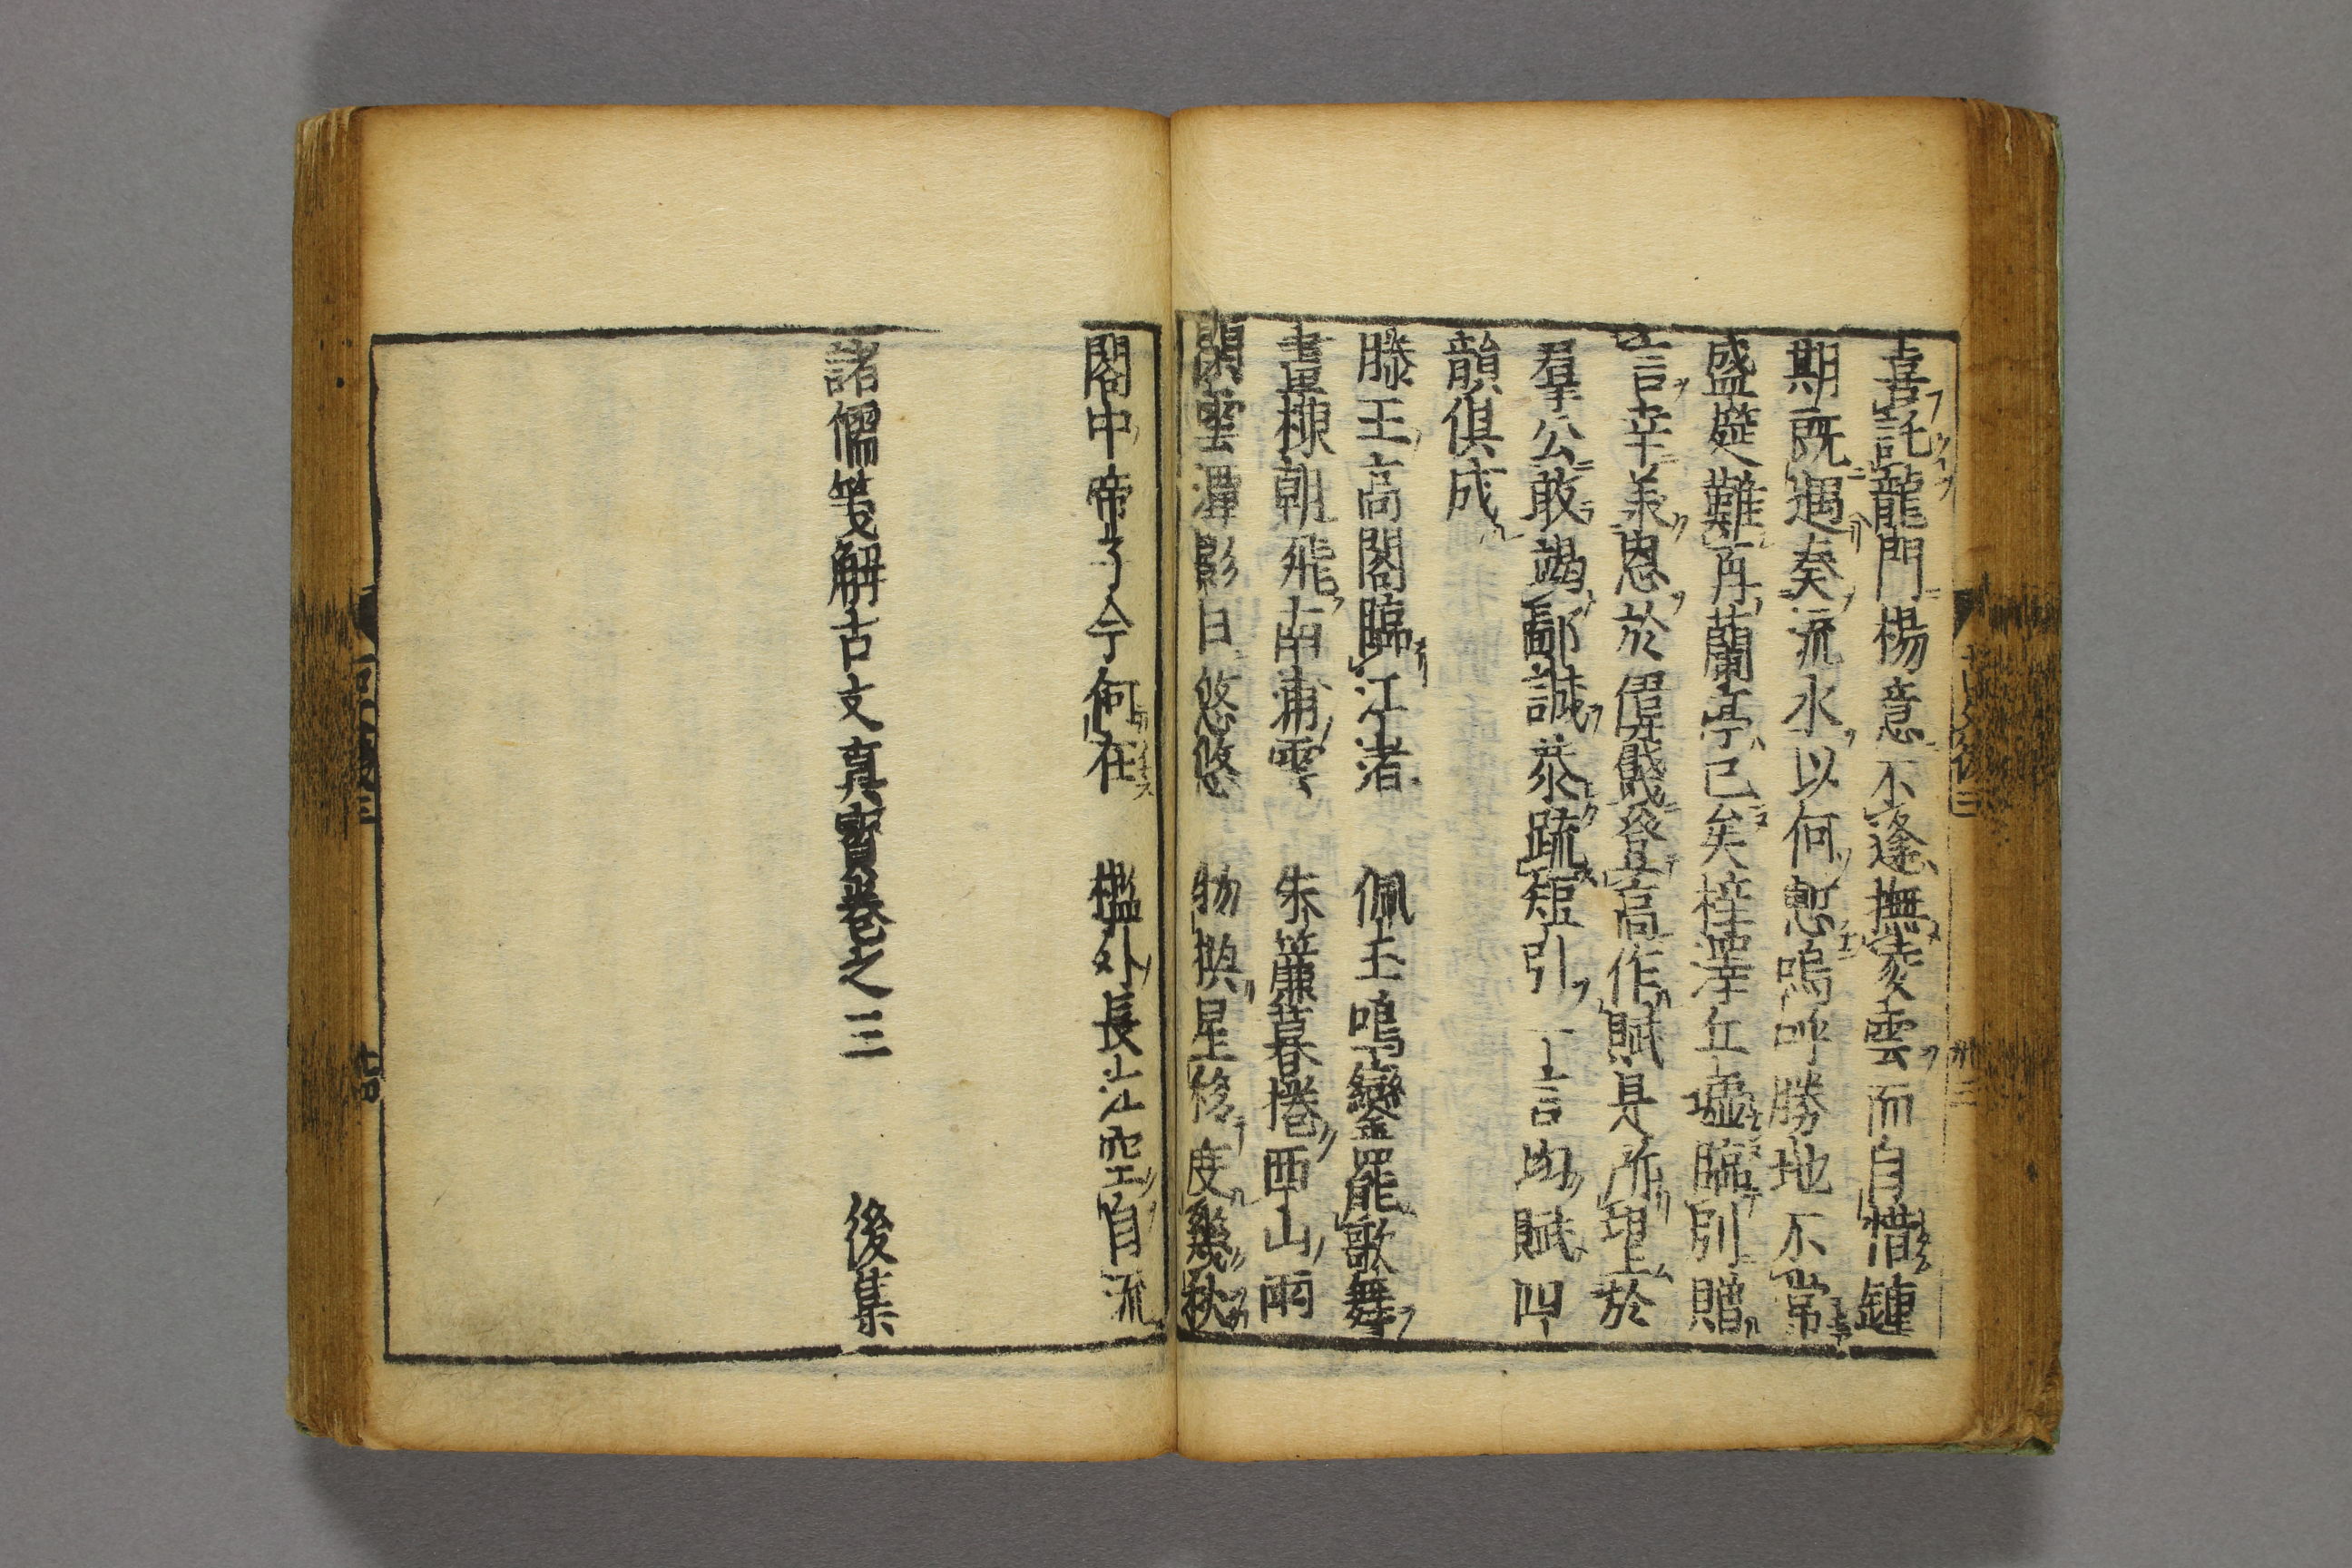 喜託龍門楊意不逢撫凌雲而自惜鍾
期既遇奏流水以何慙嗚呼勝地不常
盛筵難再蘭亭已矣梓澤丘墟臨別贈
言幸羕恩於偉餞登高作賦是所望於
羣公敢竭鄙誠恭疏短引一言均賦四
韻俱成
滕王高閣臨江渚 佩玉鳴鑾罷歌舞
畫棟朝飛南浦雲 朱簾暮捲西山雨
閑雲潭影日悠悠 物換星移度幾秋
閣中帝子今何在 檻外長江空自流
諸儒箋解古文真寶卷之三 後集